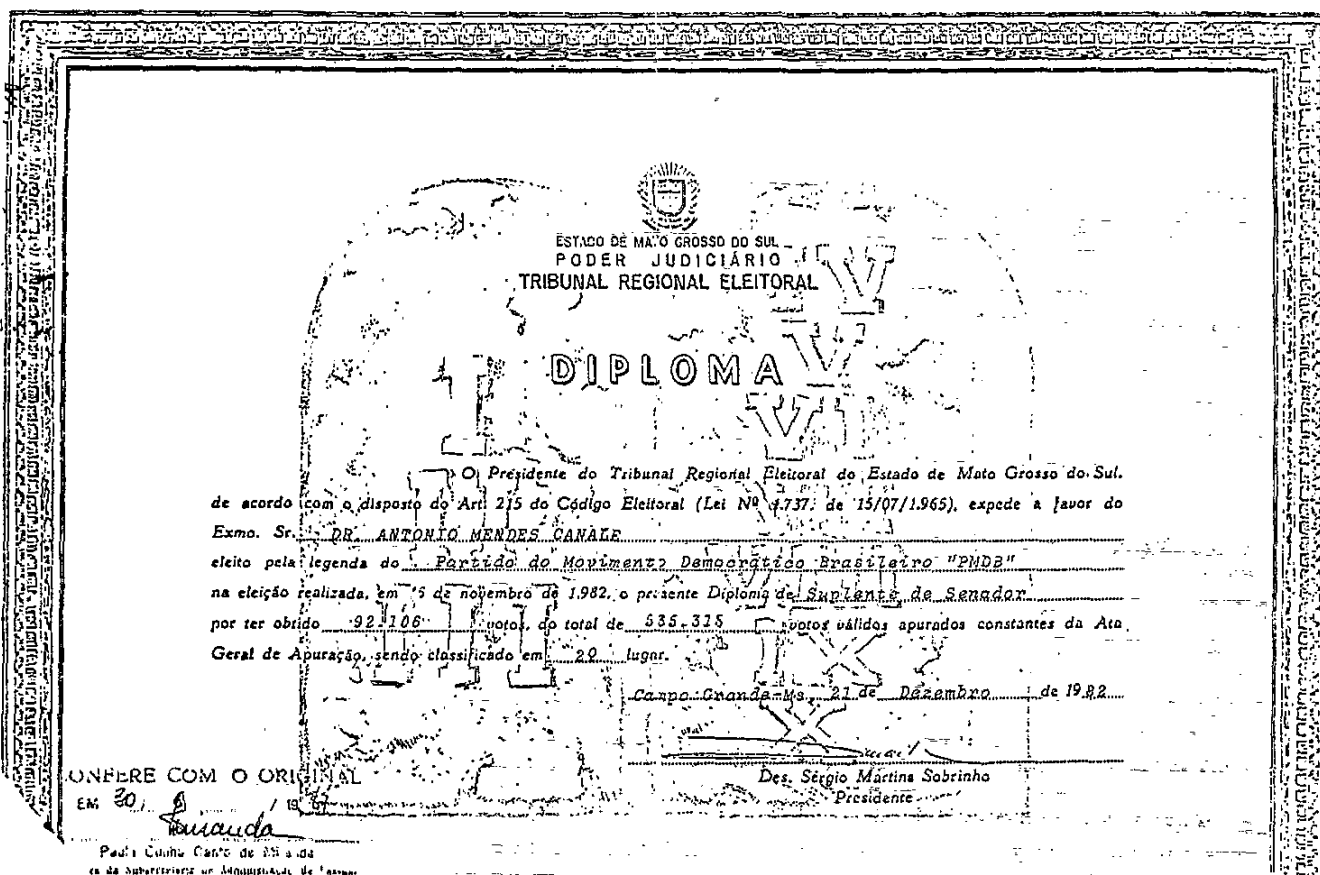 ESTADO DE MATO GROSSO DO SUL
PODER JUDICIÁRIO
TRIBUNAL REGIONAL ELEITORAL
DIPLOMA
I
IV
V
VI
O Presidente do Tribunal Regional Eleitoral do Estado de Mato Grosso do Sul,
de acordo com o disposto do Art. 215 do Código Eleitoral (Lei Nº 4.737, de 15/07/1.965), expede a favor do
Exmo. Sr. DR. ANTONIO MENDES CANALE
eleito pela legenda do Partido do Movimento Democrático Brasileiro "PMDB"
na eleição realizada, em 15 de novembro de 1.982, o presente Diploma de Suplente de Senador
por ter obtido 92.106 votos, do total de 535.315 votos válidos apurados constantes da Ata
Geral de Apuração, sendo classificado em 2º lugar.
III
IX
X
Campo Grande-Ms, 21 de Dezembro de 1982
Des. Sérgio Martins Sobrinho
Presidente
ONFERE COM O ORIGINAL
EM 30 / / 19
Miranda
Paula Cunha Canto de Miranda